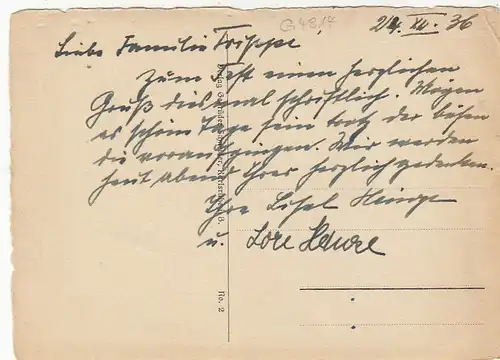 G4817
24. XII. 36
Liebe Familie Trippe,
Zum Fest einen herzlichen
Gruß diesmal schriftlich. Mögen
es schöne Tage sein trotz der bösen
die vorausgingen. Wir werden
heut Abend Ihrer herzlich gedenken.
Ihre Lisel
u. Lore
No. 2